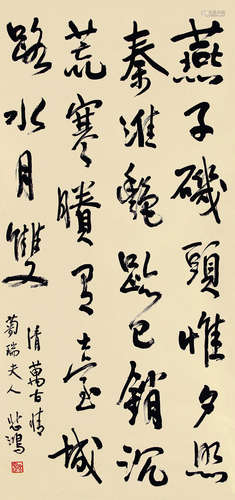 燕子磯頭惟夕照
秦淮艷跡已銷沉
荒寒賸有臺城
路水月雙
清萬古情
蜀瑞夫人 悲鴻